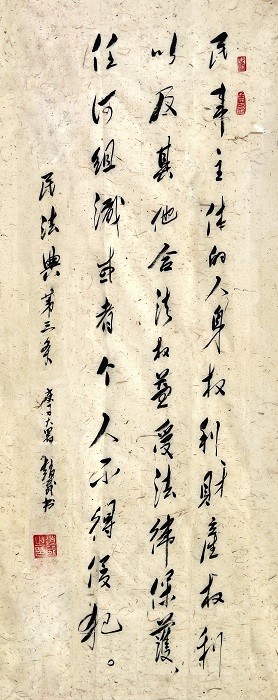 民事主体的人身权利財産权利
以及其他合法权益受法律保護、
任何组織或者个人不得侵犯。
民法典第三条 庚子大暑 书